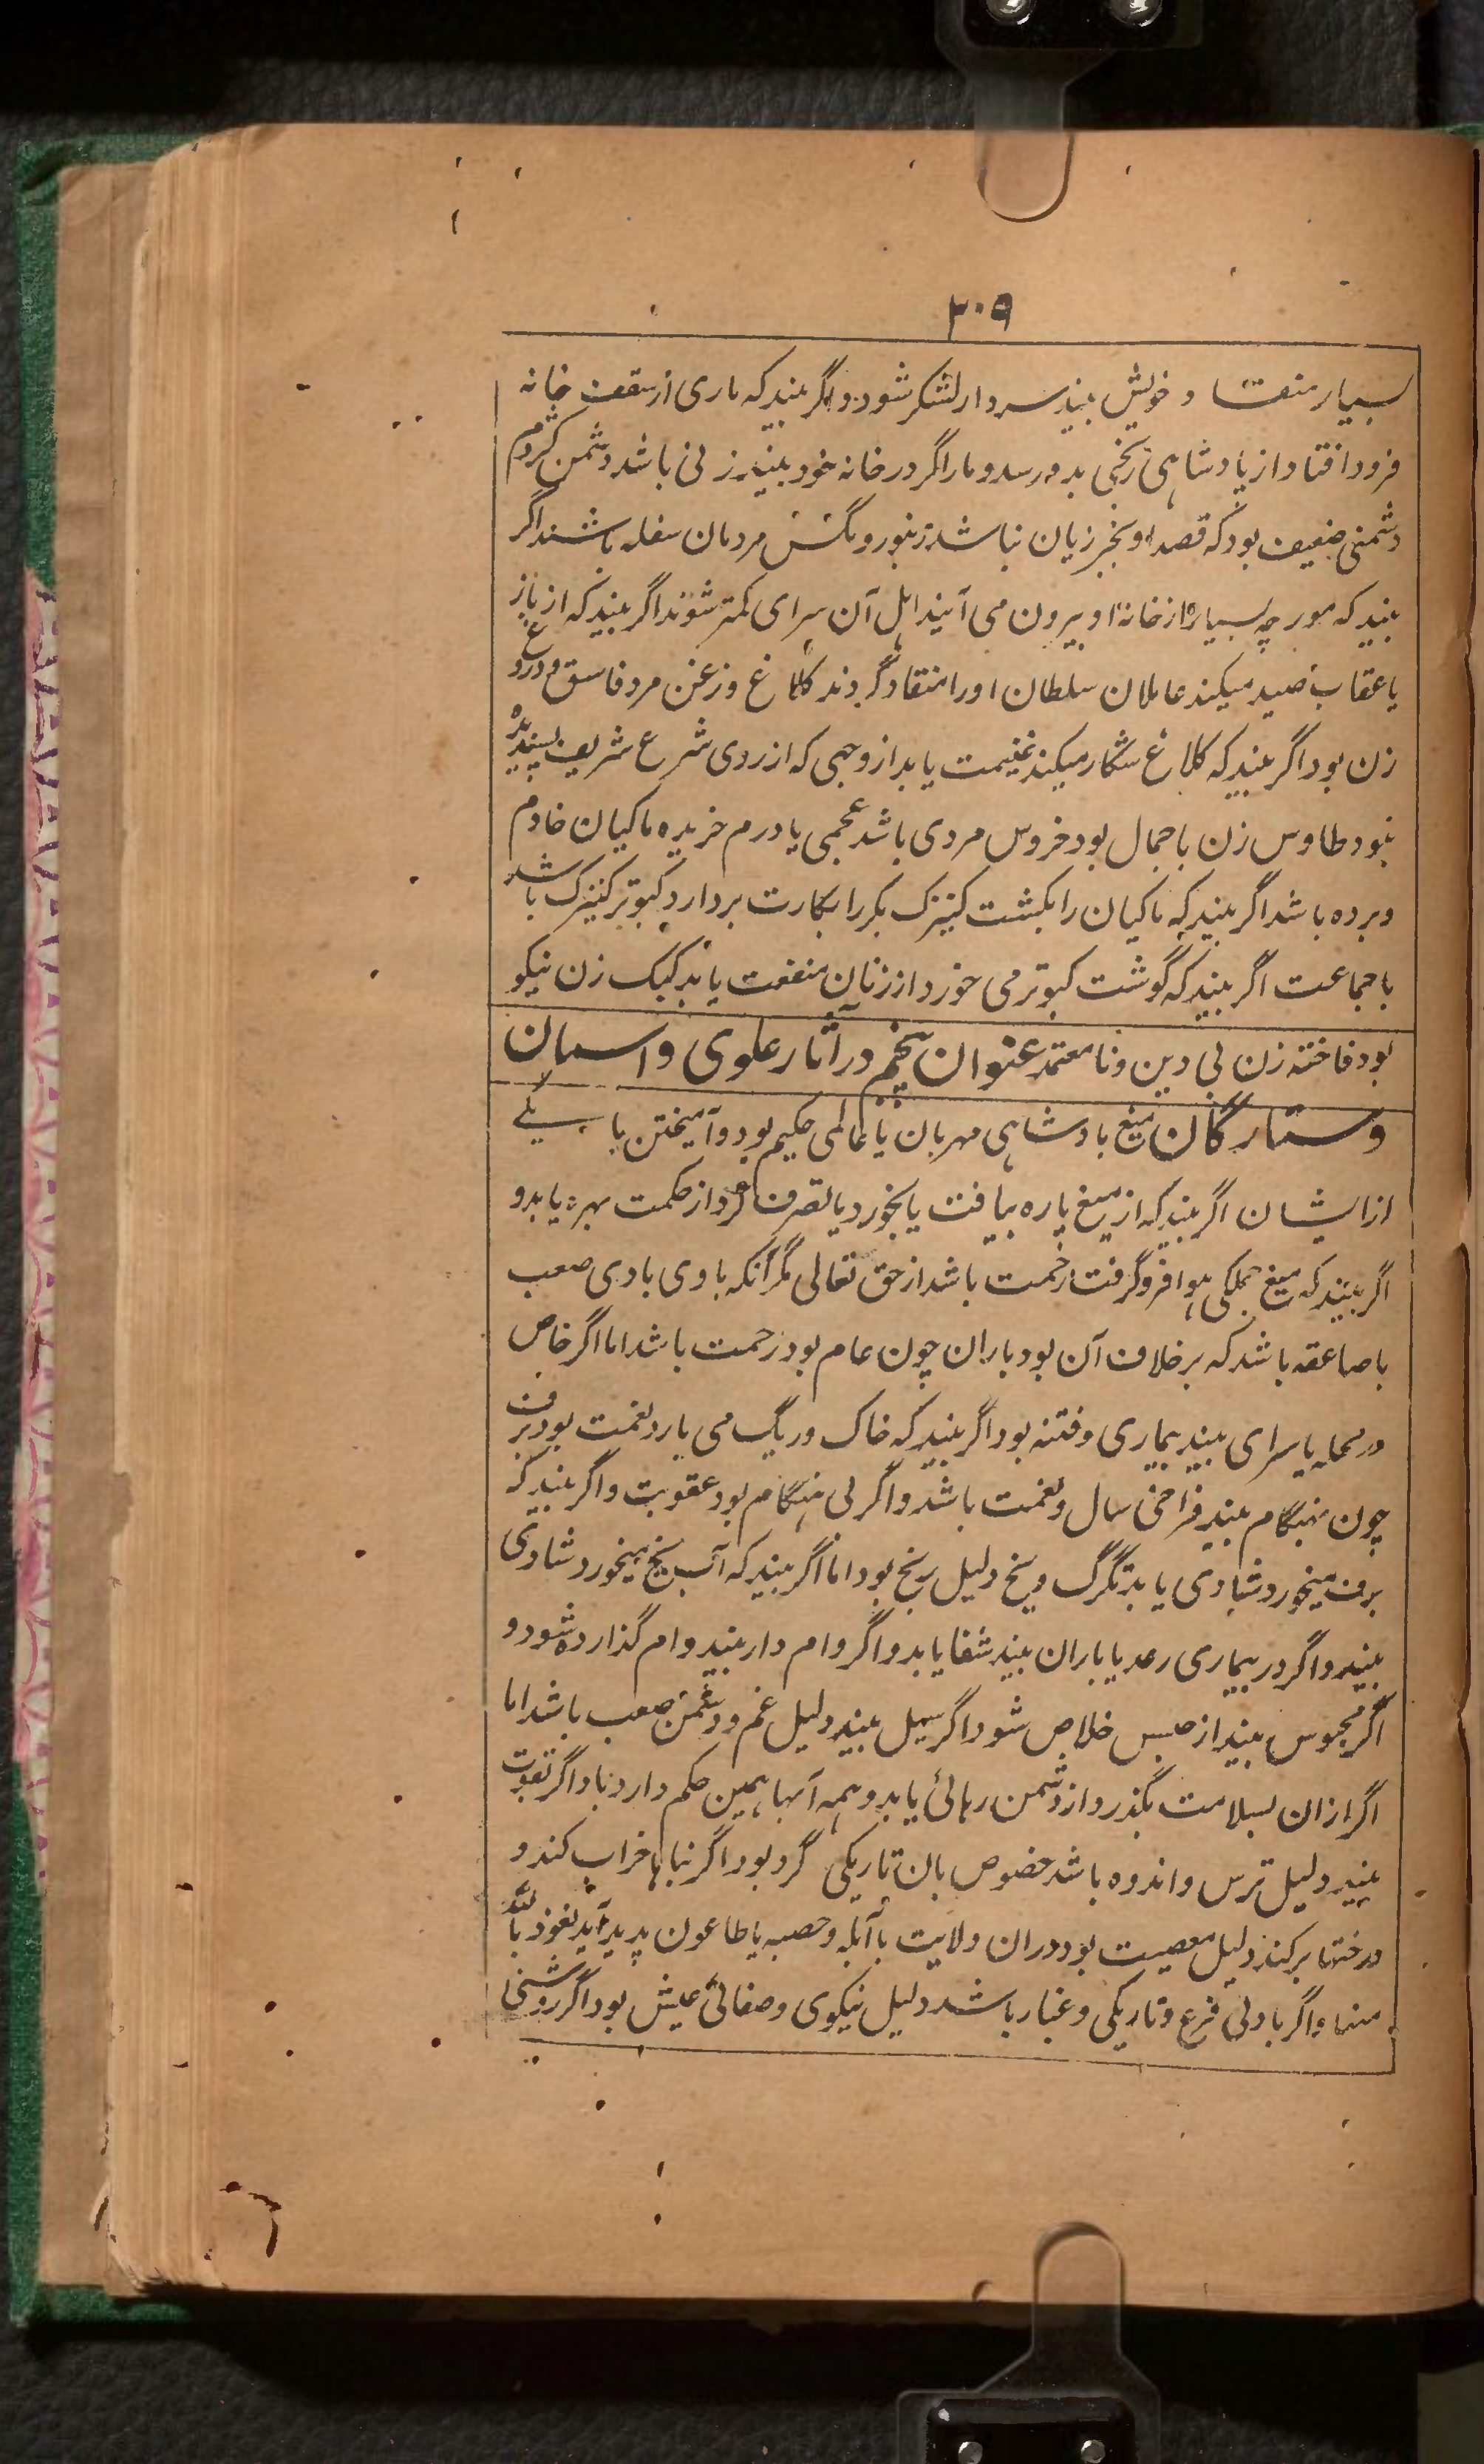 ۳۰۹
بسیار منقاد خویش بیند سردار لشکر شود و اگر بیند که ماری از سقف خانه
فرود افتاد از پادشاهی رنجی بدو رسد و مار اگر در خانه خود بیند زنی باشد دشمن کژدم
دشمنی ضعیف بود که قصد او بجز زیان نباشد زنبور و مگس مردمان سفله باشند اگر
بیند که مورچه بسیار از خانه او بیرون می آیند اهل آن سرای کمتر شوند اگر بیند که از باز
یا عقاب صید میکند عاملان سلطان او را منقاد گردند کلاغ و زغن مرد فاسق و دروغ
زن بود اگر بیند که کلاغ شکار میکند غنیمت یابد از وجهی که از روی شرع شریف پسندیده
نبود طاوس زن با جمال بود خروس مردی باشد عجمی یا درم خریده ماکیان خادم
و برده باشد اگر بیند که ماکیان را بکشت کنیزک بکر را بکارت بردارد کبوتر کنیزک باشد
با جماعت اگر بیند که گوشت کبوتر می خورد از زنان منفعت یابد کبک زن نیکو
بود فاخته زن بی دین و نامعتمد عنوان پنجم در آثار علوی و آسمان
و ستارگان میغ بادشاهی مهربان یا عالمی حکیم بود و آمیختن با یکے
از ایشان اگر بیند که از میغ پاره بیافت یا بخورد یا تصرف کرد از حکمت بهره یابد و
اگر بیند که میغ جملگی هوا فرو گرفت رحمت باشد از حق تعالی مگر آنکه با وی بادی صعب
با صاعقه باشد که برخلاف آن بود باران چون عام بود رحمت باشد اما اگر خاص
در محله یا سرای بیند بیماری و فتنه بود اگر بیند که خاک و ریگ می بارد نعمت بود برف
چون بهنگام بیند فراخی سال و نعمت باشد و اگر بی هنگام بود عقوبت و اگر بیند که
برف میخورد شادی یابد تگرگ و یخ دلیل رنج بود اما اگر بیند که آب یخ میخورد شادی
بیند و اگر در بیماری رعد یا باران بیند شفا یابد و اگر وام دار بیند وام گذارده شود و
اگر محبوس بیند از حبس خلاص شود اگر سیل بیند دلیل غم و دشمن صعب باشد اما
اگر ازان بسلامت بگذرد از دشمن رهائی یابد و همه آبها همین حکم دارد باد اگر بقوت
بیند دلیل ترس و اندوه باشد خصوص بان تاریکی گرد بود اگر بناها خراب کند و
درختها بر کند دلیل معصیت بود دران ولایت با آبله و حصبه یا طاعون پدید آید نعوذ بالله
منها و اگر باد بی فزع و تاریکی و غبار باشد دلیل نیکوی و صفائی عیش بود اگر روشنی